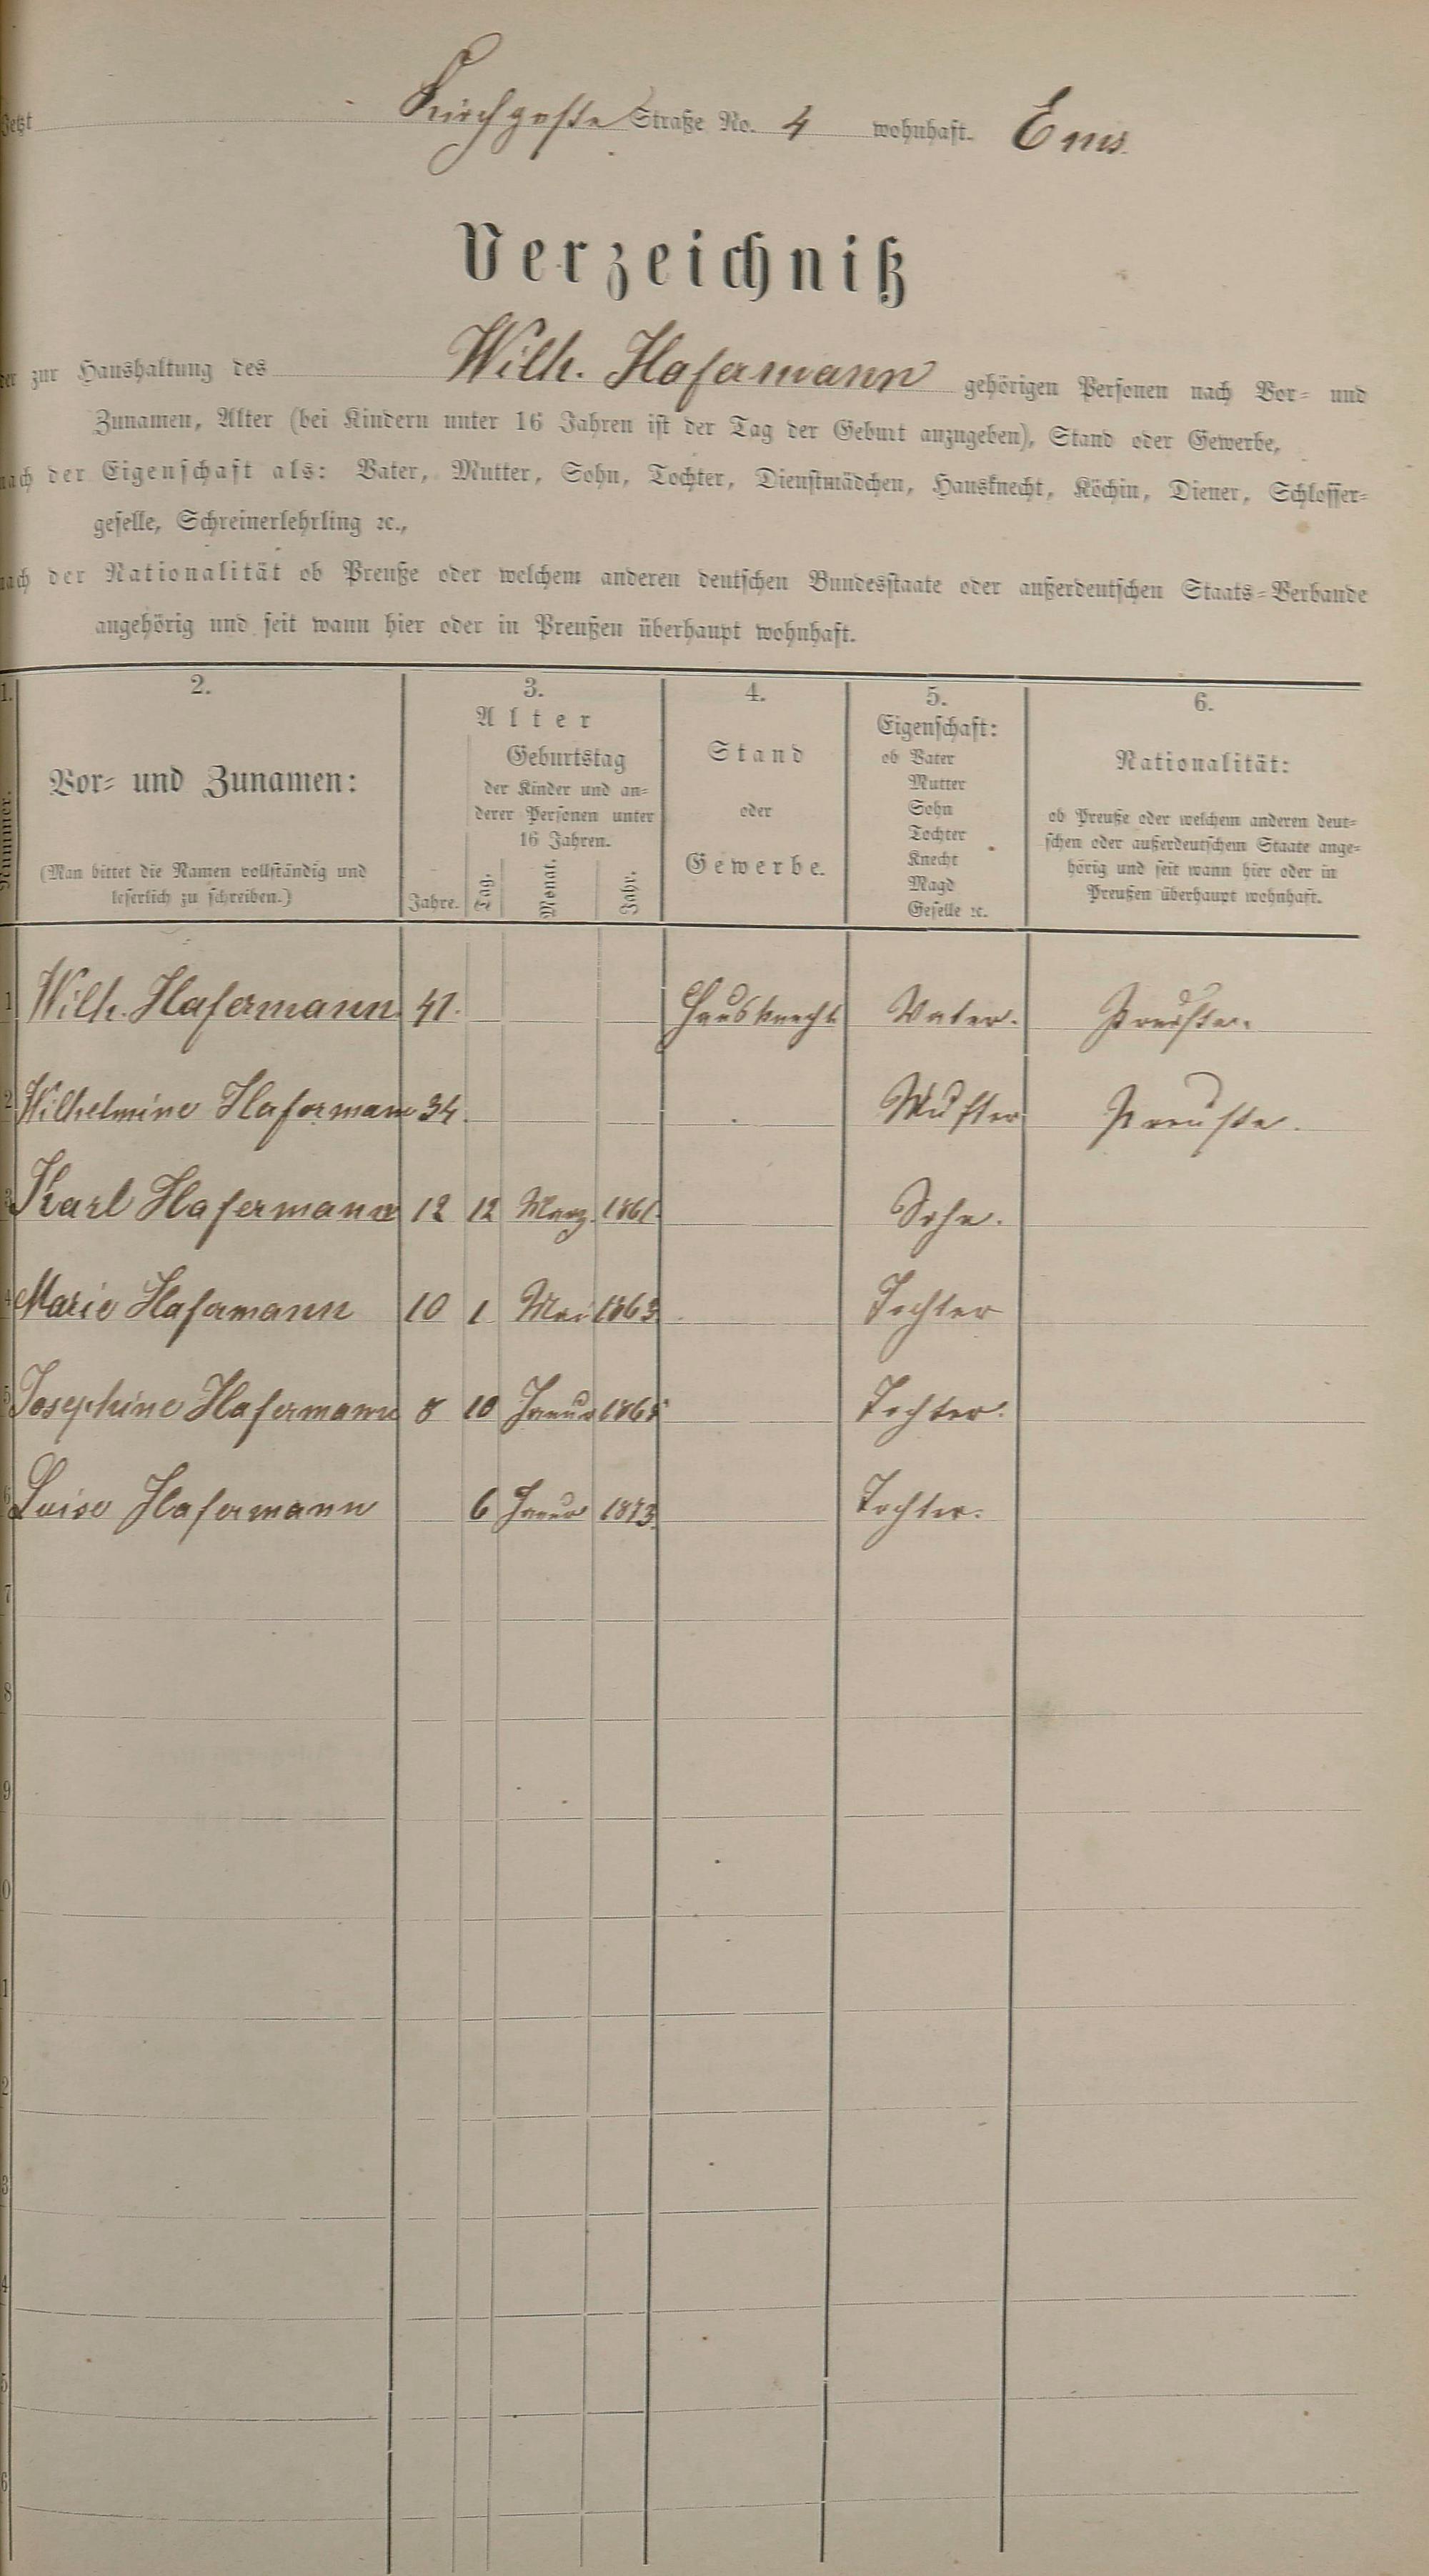 Jetzt Kirchgaße Straße No. 4 wohnhaft. Ems.
Verzeichniß
der zur Haushaltung des Wilh. Hafermann gehörigen Personen nach Vor- und
Zunamen, Alter (bei Kindern unter 16 Jahren ist der Tag der Geburt anzugeben), Stand oder Gewerbe,
nach der Eigenschaft als: Vater, Mutter, Sohn, Tochter, Dienstmädchen, Hausknecht, Köchin, Diener, Schlosser-
geselle, Schreinerlehrling ꝛc.,
nach der Nationalität ob Preuße oder welchem anderen deutschen Bundesstaate oder außerdeutschen Staats-Verbande
angehörig und seit wann hier oder in Preußen überhaupt wohnhaft.
1. 2. 3. 4. 5. 6.
Nummer.
Vor- und Zunamen:
(Man bittet die Namen vollständig und
leserlich zu schreiben.)
Alter
Jahre.
Geburtstag
der Kinder und an-
derer Personen unter
16 Jahren.
Tag. Monat. Jahr.
Stand
oder
Gewerbe.
Eigenschaft:
ob Vater
Mutter
Sohn
Tochter
Knecht
Magd
Geselle ꝛc.
Nationalität:
ob Preuße oder welchem anderen deut-
schen oder außerdeutschem Staate ange-
hörig und seit wann hier oder in
Preußen überhaupt wohnhaft.
1 Wilh. Hafermann 41. Hausknecht Vater. Preuße.
2 Wilhelmine Hafermann 34. Mutter Preuße.
3 Karl Hafermann 12 12 März. 1861. Sohn.
4 Marie Hafermann 10 1 Mai 1863. Tochter
5 Josephine Hafermann 8 10 Januar 1865 Tochter.
6 Luise Hafermann 6 Januar 1873. Tochter.
7
8
9
0
1
2
3
4
5
6